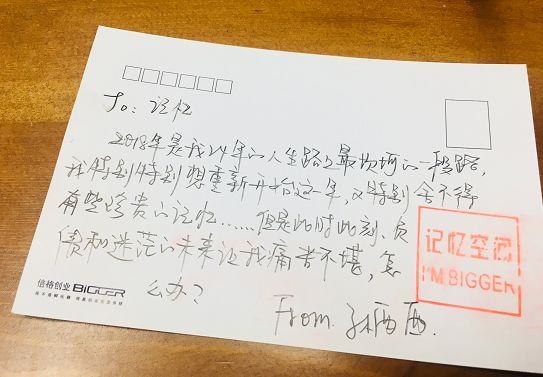 To：记忆
2018年是我24年的人生路上最坎坷的一段路，
我特别特别想重新开始这一年，又特别舍不得
有些珍贵的记忆……但是此时此刻、负
债和迷茫的未来让我痛苦不堪，怎
么办？
From.
记忆空记
I'M BIGGER
倍格创业 BIGGER